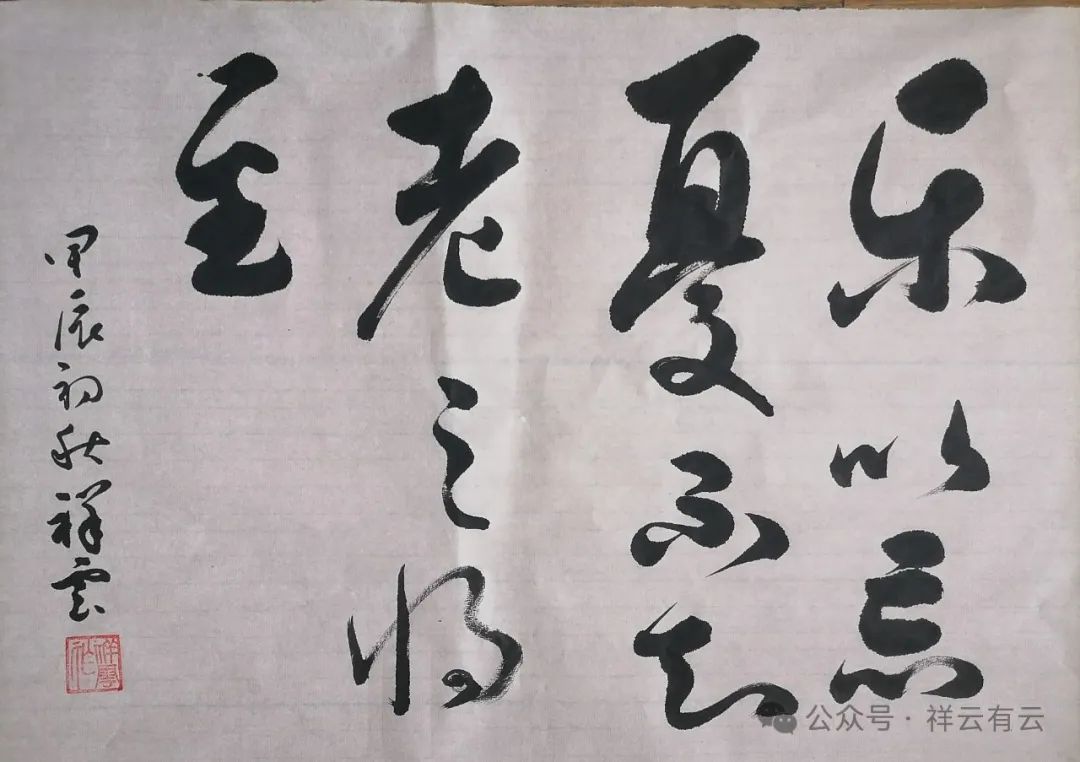 乐以忘
憂不知
老之将
至
甲辰初秋祥雲
公众号·祥云有云